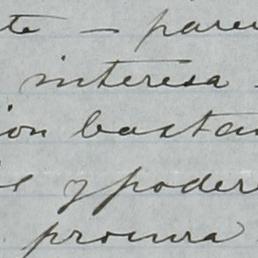 te — pare
interesa
ion bastan
y poder
procura